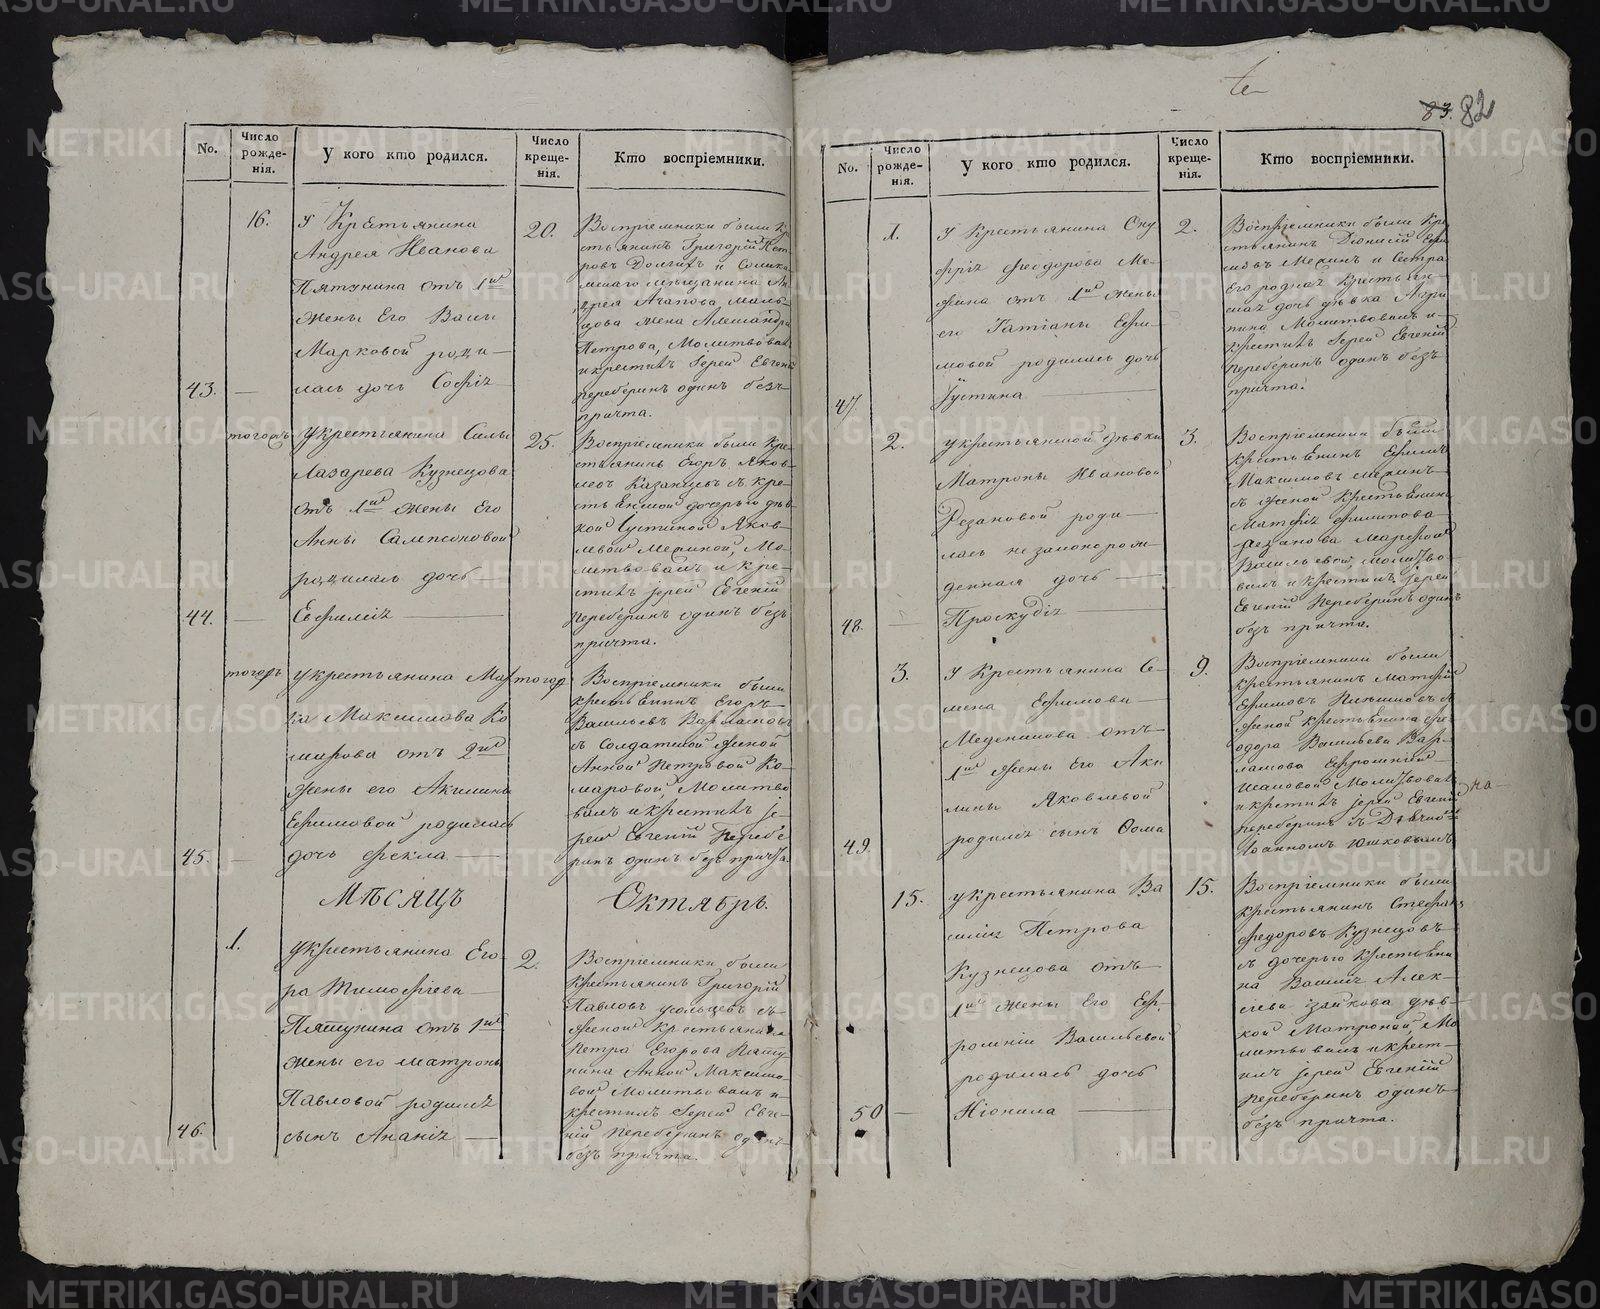 83. 82
No.
Число рожде-нія.
У кого кто родился.
Число креще-нія.
Кто воспріемники.
16.
У Крестьянина
Андрея Иванова
Пятунина отъ 1ой
жены Его Васы
Марковой роди-
43. — лась дочь Софія
20.
Воспріемники были Кре
стьянинъ Григорій Пет
ровъ Долгихъ и Солика
мскаго мѣщанина Ан
дрея Агапова
жена Александра
Петрова, Молитвовал
и крестилъ Іерей Евгеній
Переберинъ одинъ безъ
причта.
тогожъ
у крестьянина Силы
Лазарева Кузнецова
отъ 1ой жены Его
Анны Сампсоновой
родилась дочь —
44. — Евфимія —
25.
Воспріемники были Кре-
стьянинъ Егоръ Яков-
левъ Казанцевъ съ кре-
стьянской дочерью дѣв-
кой Іустиной Яков-
левой Мелиной, Мо-
литвовалъ и кре-
стилъ іерей Евгеній
Переберинъ одинъ безъ
причта.
тогожъ
у крестьянина Мар
ка Максимова Ко
марова отъ 2ой
жены его Акилины
Ефимовой родилась
45. — дочь Фекла —
тогож
Воспріемники были
крестьянинъ Егоръ
Васильевъ Варламовъ
съ Солдатской женой
Анной Петровой Ко
маровой, Молитво
валъ и крестилъ іе-
рей Евгеній Перебе
ринъ одинъ безъ причта.
Мѣсяцъ Октябрь.
1.
у крестьянина Его-
ра Тимофеева —
Пятунина отъ 1ой
жены его Матроны
Павловой родился
46. сынъ Ананія —
2.
Воспріемники были
крестьянинъ Григорій
Павловъ Усольцевъ съ
женой крестьянина
Петра Егорова Пяту
нина Анной Максимо-
вой Молитвовалъ и
крестилъ Іерей Евге-
ній Переберинъ одинъ
безъ причта.
No.
Число рожде-нія.
У кого кто родился.
Число креще-нія.
Кто воспріемники.
1.
У Крестьянина Ону
фрія Феодорова Ме-
лина отъ 1ой жены
его Татіаны Ефи-
мовой родилась дочь
47 Іустина —
2.
Воспріемники были Кре
стьянинъ Діонисій Ефи
мовъ Мелинъ и Сестра
Его родная Крестьян-
ская дочь дѣвка Агри-
пина Молитвовалъ и
крестилъ Іерей Евгеній
Переберинъ одинъ безъ
причта.
2.
у крестьянской дѣвки
Матроны Ивановой
Резановой роди-
лась незаконорож-
денная дочь —
48. — Проскудія —
3.
Воспріемники были
крестьянинъ Ефимъ
Максимовъ Мелинъ
съ женой Крестьянина
Матфія Филипова
Резанова Марфой
Васильевой, молитво-
валъ и крестилъ іерей
Евгеній Переберинъ один
безъ причта.
3.
У Крестьянина Се-
мена Ефимова —
Меденцова отъ
1ой жены Его Аки
лины Яковлевой
49. родился сынъ Фома
9.
Воспріемники были
крестьянинъ Матфій
Ефимовъ съ
женой крестьянина Фе
одора Васильева Вар-
ламова Ефросиніей
Молитвовалъ на-
и крестилъ іерей Евгеній
Переберинъ съ Дьячкомъ
Іоанномъ Юшковымъ
15.
у крестьянина Ва
силія Петрова
Кузнецова отъ
1ой жены Его Еф-
росиніи Васильевой
родилась дочь
50 — Ніонила —
15.
Воспріемники были
крестьянинъ Стефанъ
Федоровъ Кузнецовъ
съ дочерью крестьяни
на Василія Алек-
сіева Зайкова дѣв-
кой Матроной, Мо
литвовалъ и крест-
илъ іерей Евгеній
Переберинъ одинъ
безъ причта.
METRIKI.GASO-URAL.RU